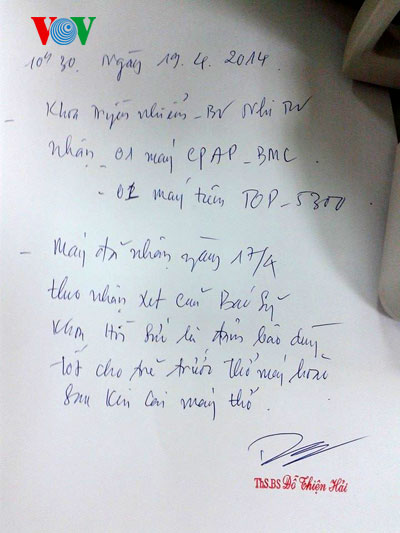 VOV
10h30. Ngày 19.4.2014.
- Khoa Truyền nhiễm - BV Nhi TW
nhận - 01 máy CPAP - BMC.
- 01 máy tiêm TOP - 5300
- Máy đã nhận ngày 17/4
theo nhận xét của Bác Sỹ
Khoa Hồi Sức là đảm bảo dùng
tốt cho trẻ trước thở máy hoặc
sau khi cai máy thở.
ThS.BS Đỗ Thiện Hải